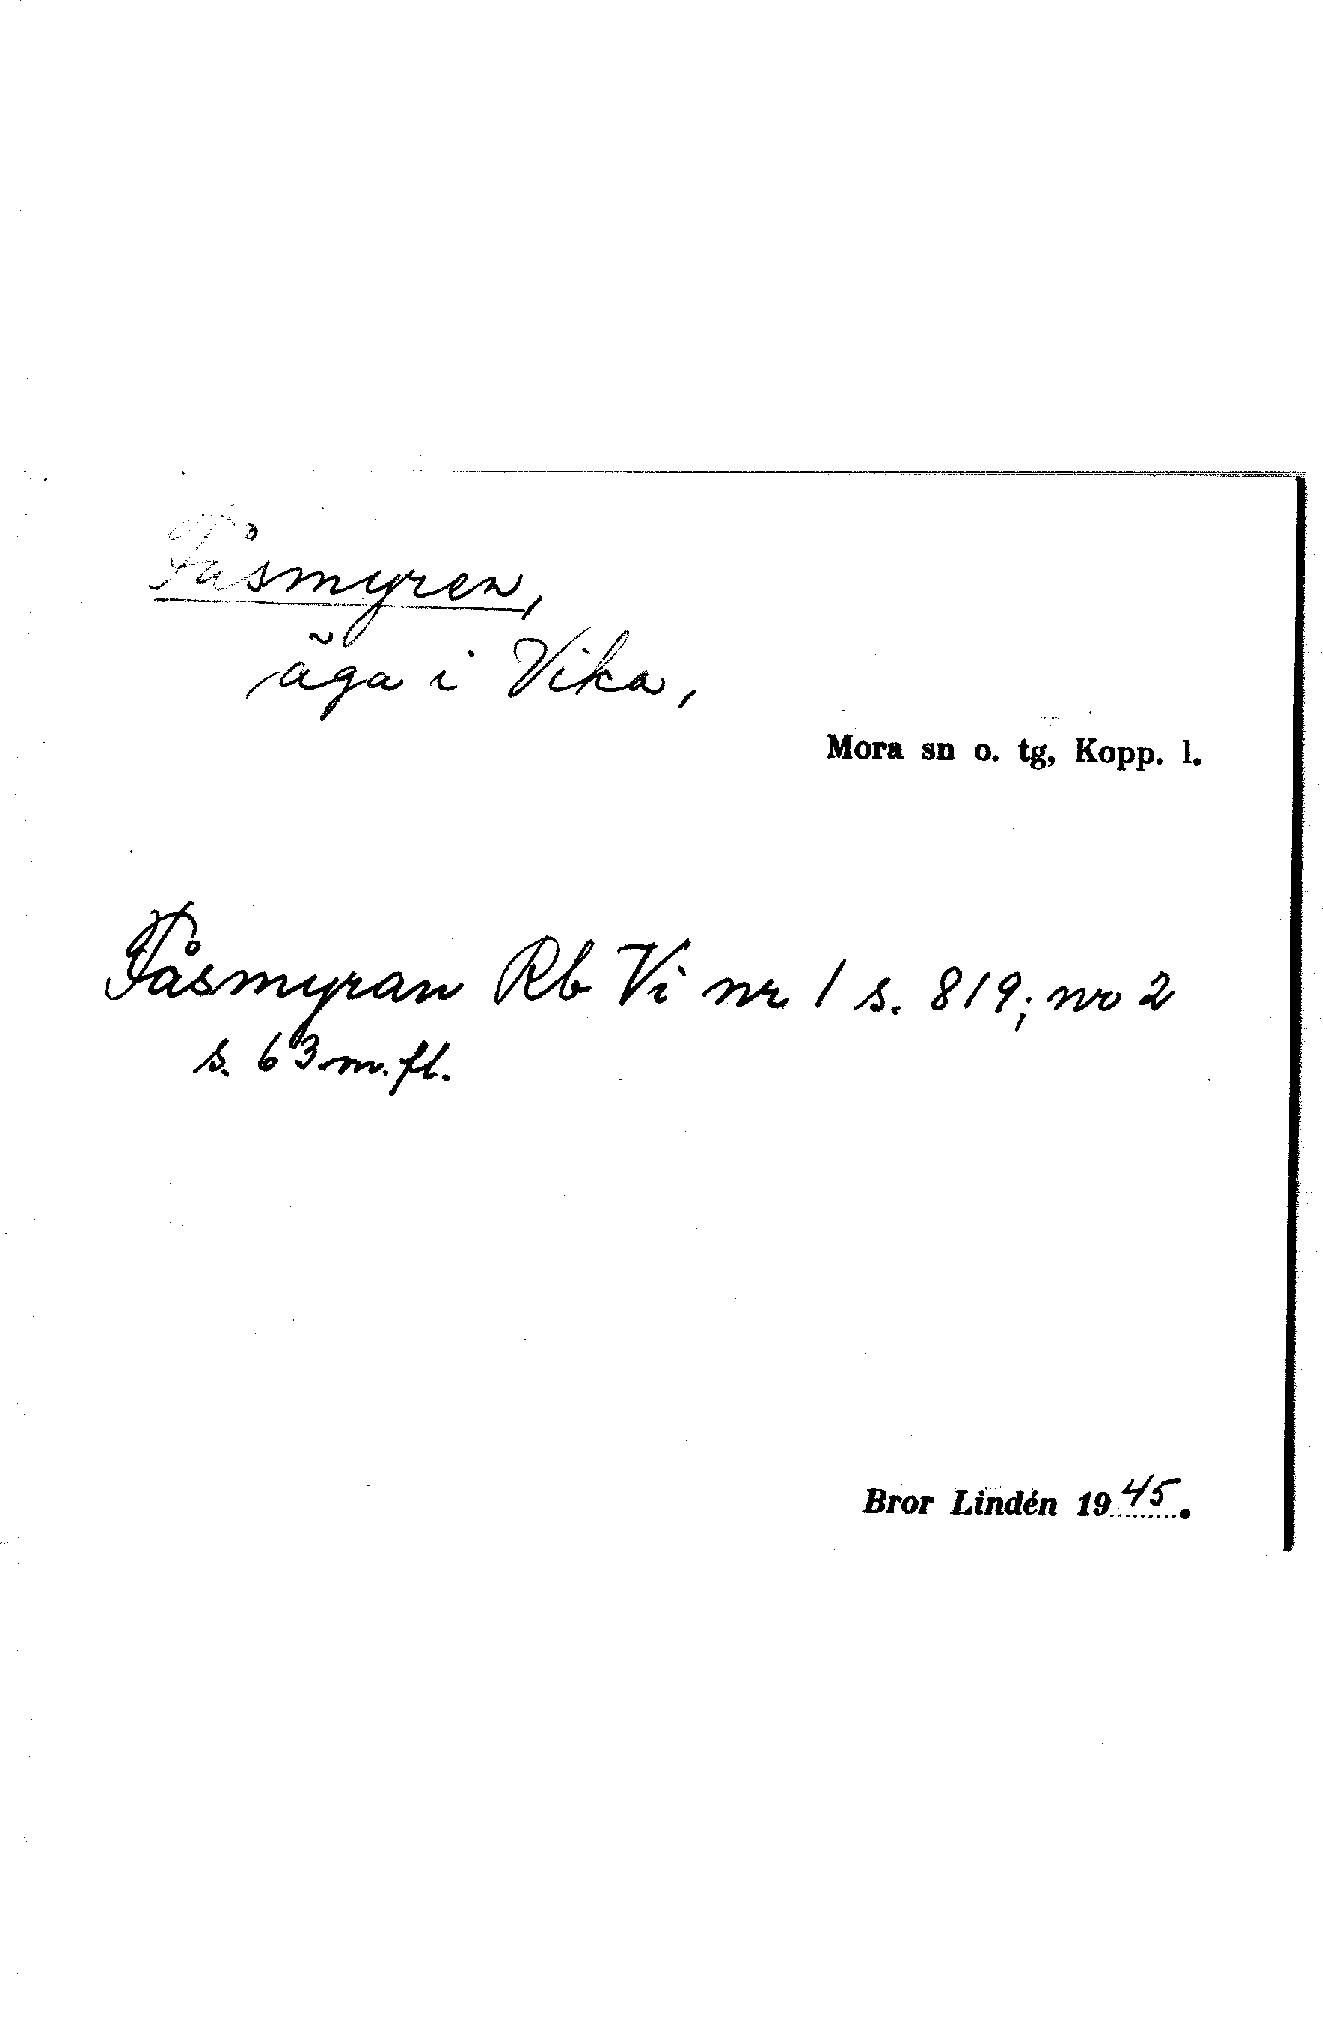 Fåsmyren,
äga i Vika,
Mora sn o. tg, Kopp. l.
Fåsmyran Rb Vi nr 1 s. 819; nr 2
s. 63 m. fl.
Bror Lindén 1945.